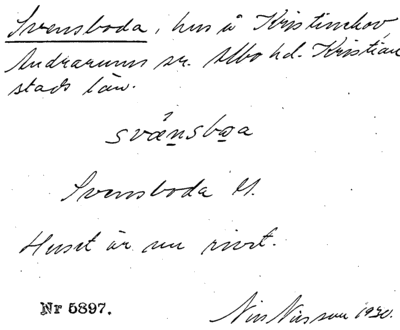 Svensboda, hus å Kristinehov
Andrarums sn. Albo hd. Kristian
stads län.
svǽnsboa
Svensboda U.
Huset är nu rivet.
Nr 5897.
Nils Nilsson 1930.